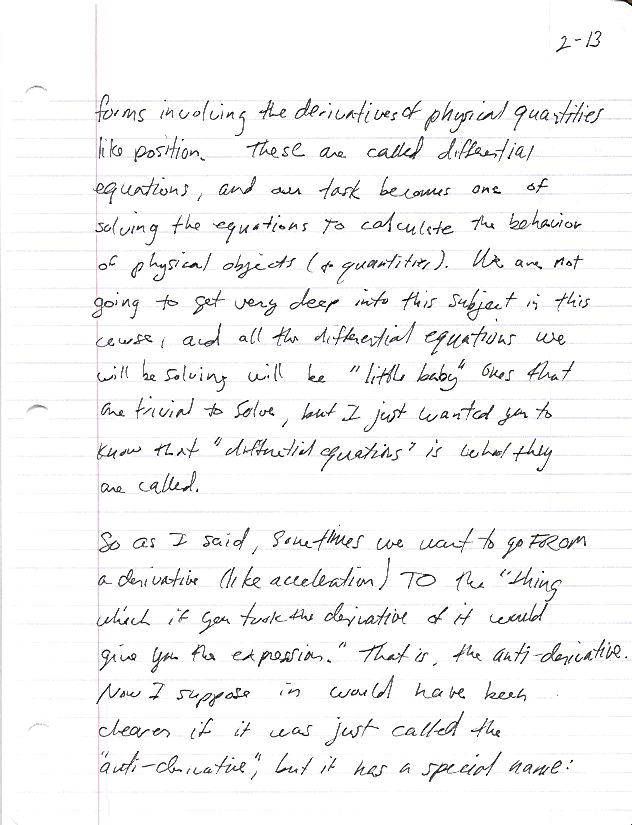 2-13
forms involving the derivatives of physical quantities
like position. These are called differential
equations, and our task becomes one of
solving the equations to calculate the behavior
of physical objects (or quantities). We are not
going to get very deep into this subject in this
course, and all the differential equations we
will be solving will be "little baby" ones that
are trivial to solve, but I just wanted you to
know that "differential equations" is what they
are called.
So as I said, sometimes we want to go FROM
a derivative (like acceleration) TO the "thing
which if you took the derivative of it would
give you the expression." That is, the anti-derivative.
Now I suppose in would have been
clearer if it was just called the
"anti-derivative", but it has a special name: